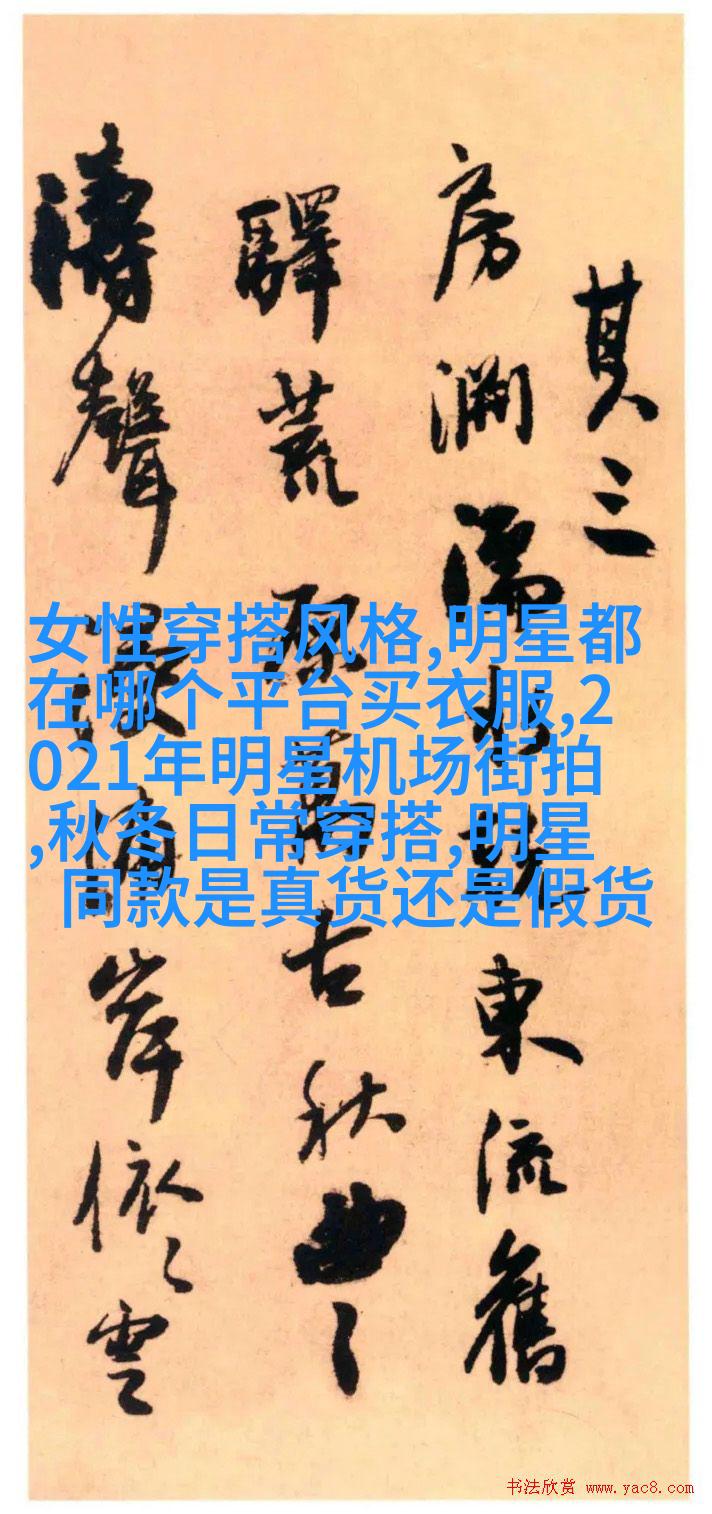 其三
房水東流舊
驛荒萬古秋曲〻
濤聲岸依〻雲
女性穿搭风格,明星都
在哪个平台买衣服,2
021年明星机场街拍
,秋冬日常穿搭,明星
同款是真货还是假货
书法欣赏 www.yac8.com